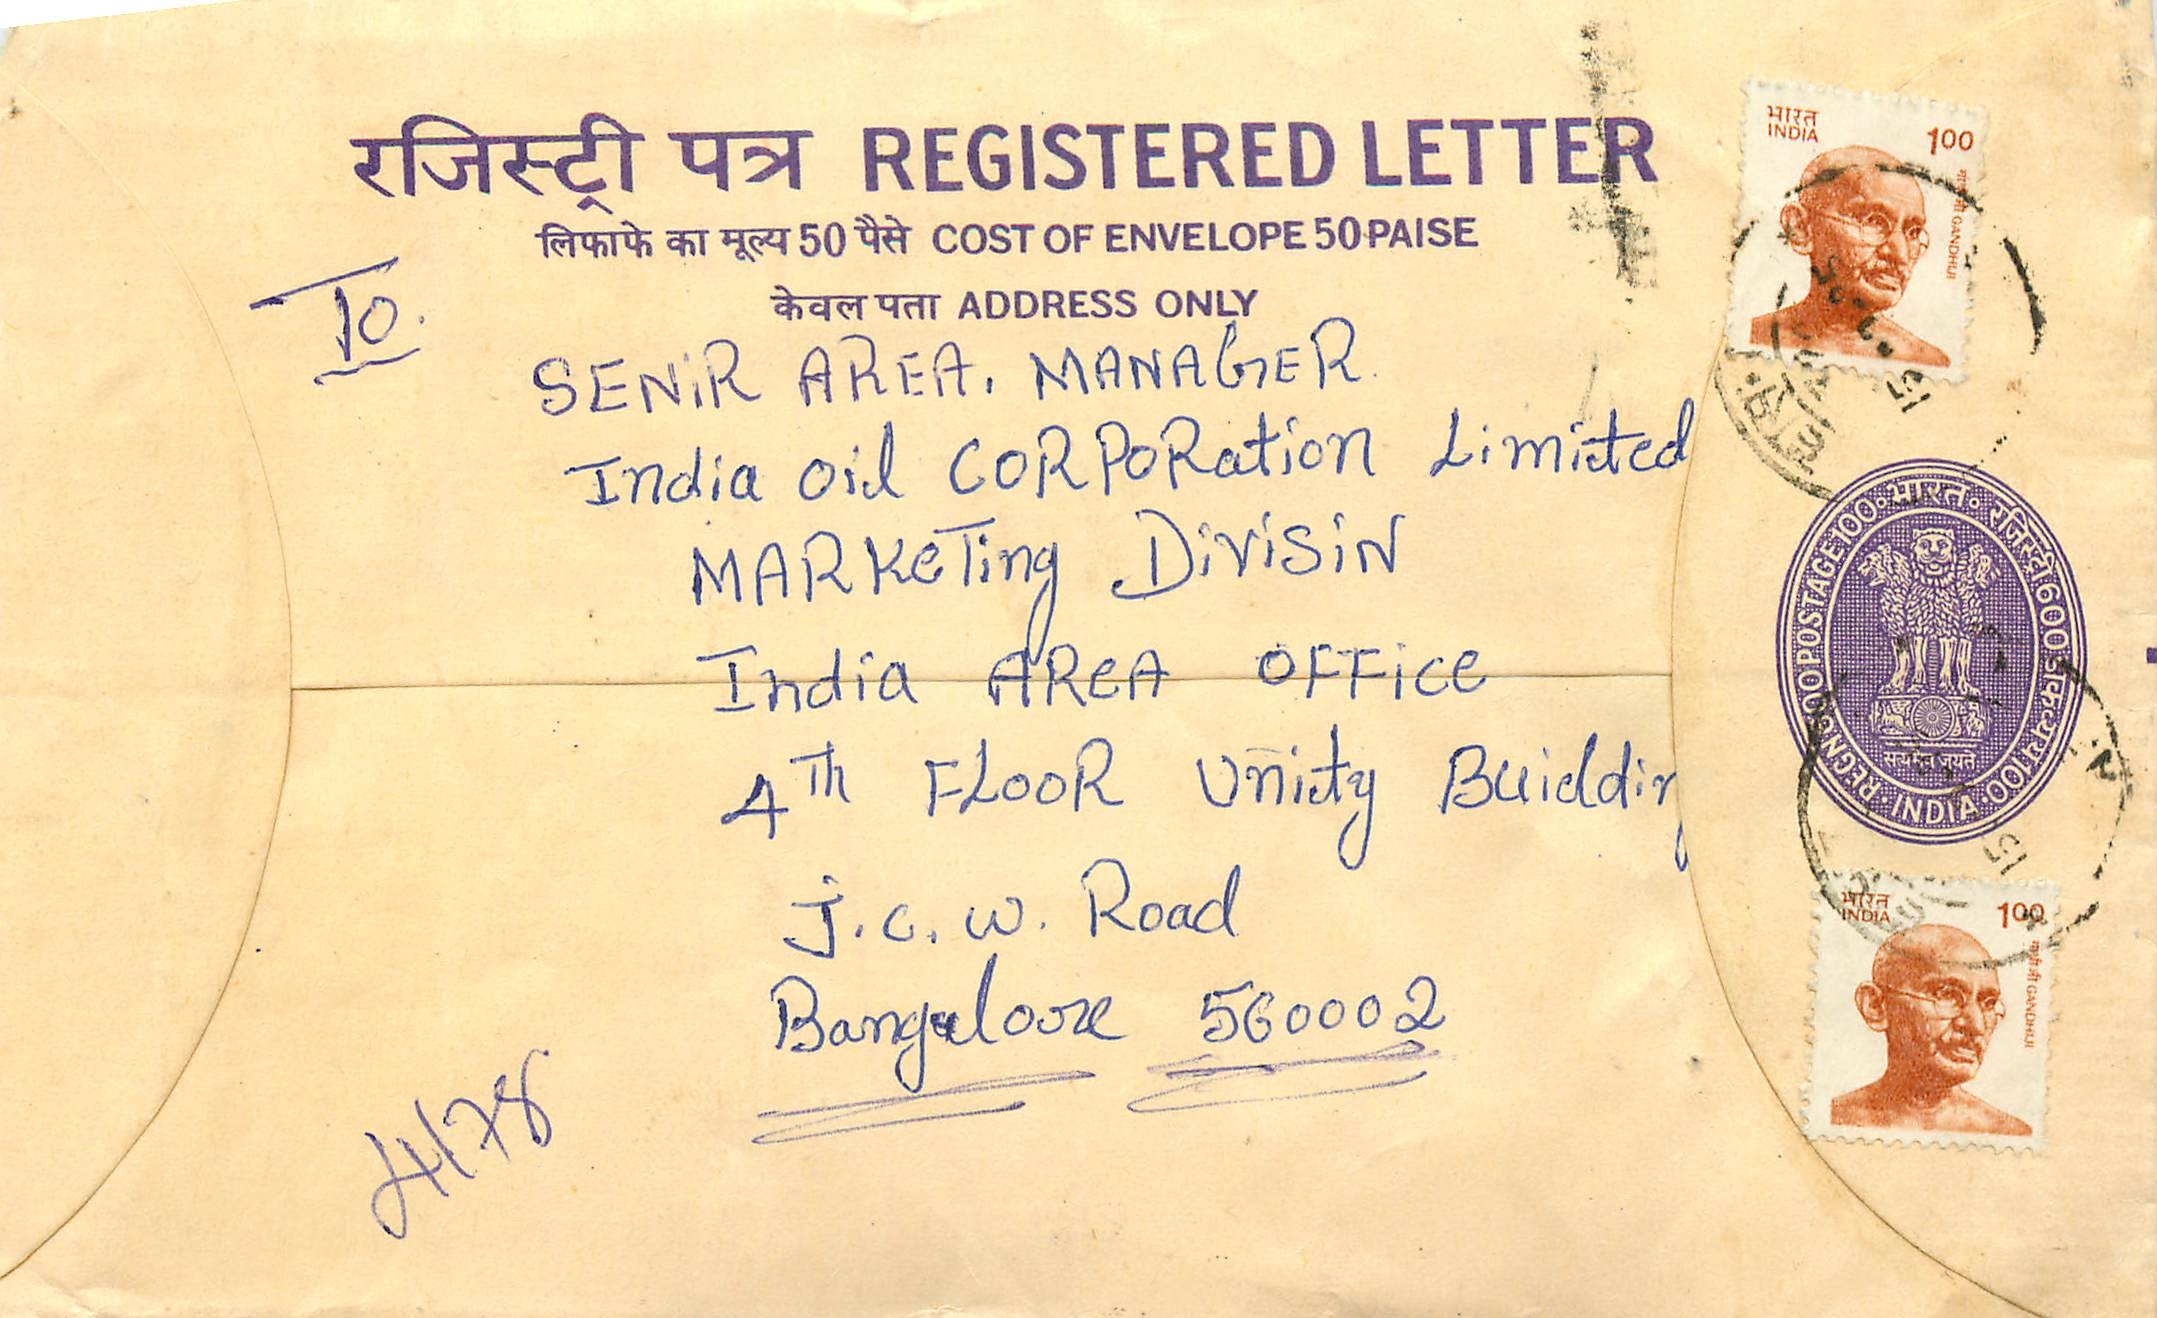 रजिस्ट्री पत्र REGISTERED LETTER
लिफाफे का मूल्य 50 पैसे COST OF ENVELOPE 50 PAISE
केवल पता ADDRESS ONLY
To.
SENiR AREA. MANAGER.
India oil CORPORation Limited
MARKeTing DiviSiN
India AReA OFFice
4Th FLOOR Unity Buiddin
J.C.W. Road
Bangaloore 560002
4178
भारत
INDIA
1.00
गांधी जी GANDHIJI
भारत रजिस्ट्री 600 डाक व्यय 100
REGN 600 POSTAGE 100
INDIA
सत्यमेव जयते
भारत
INDIA
1.00
गांधी जी GANDHIJI